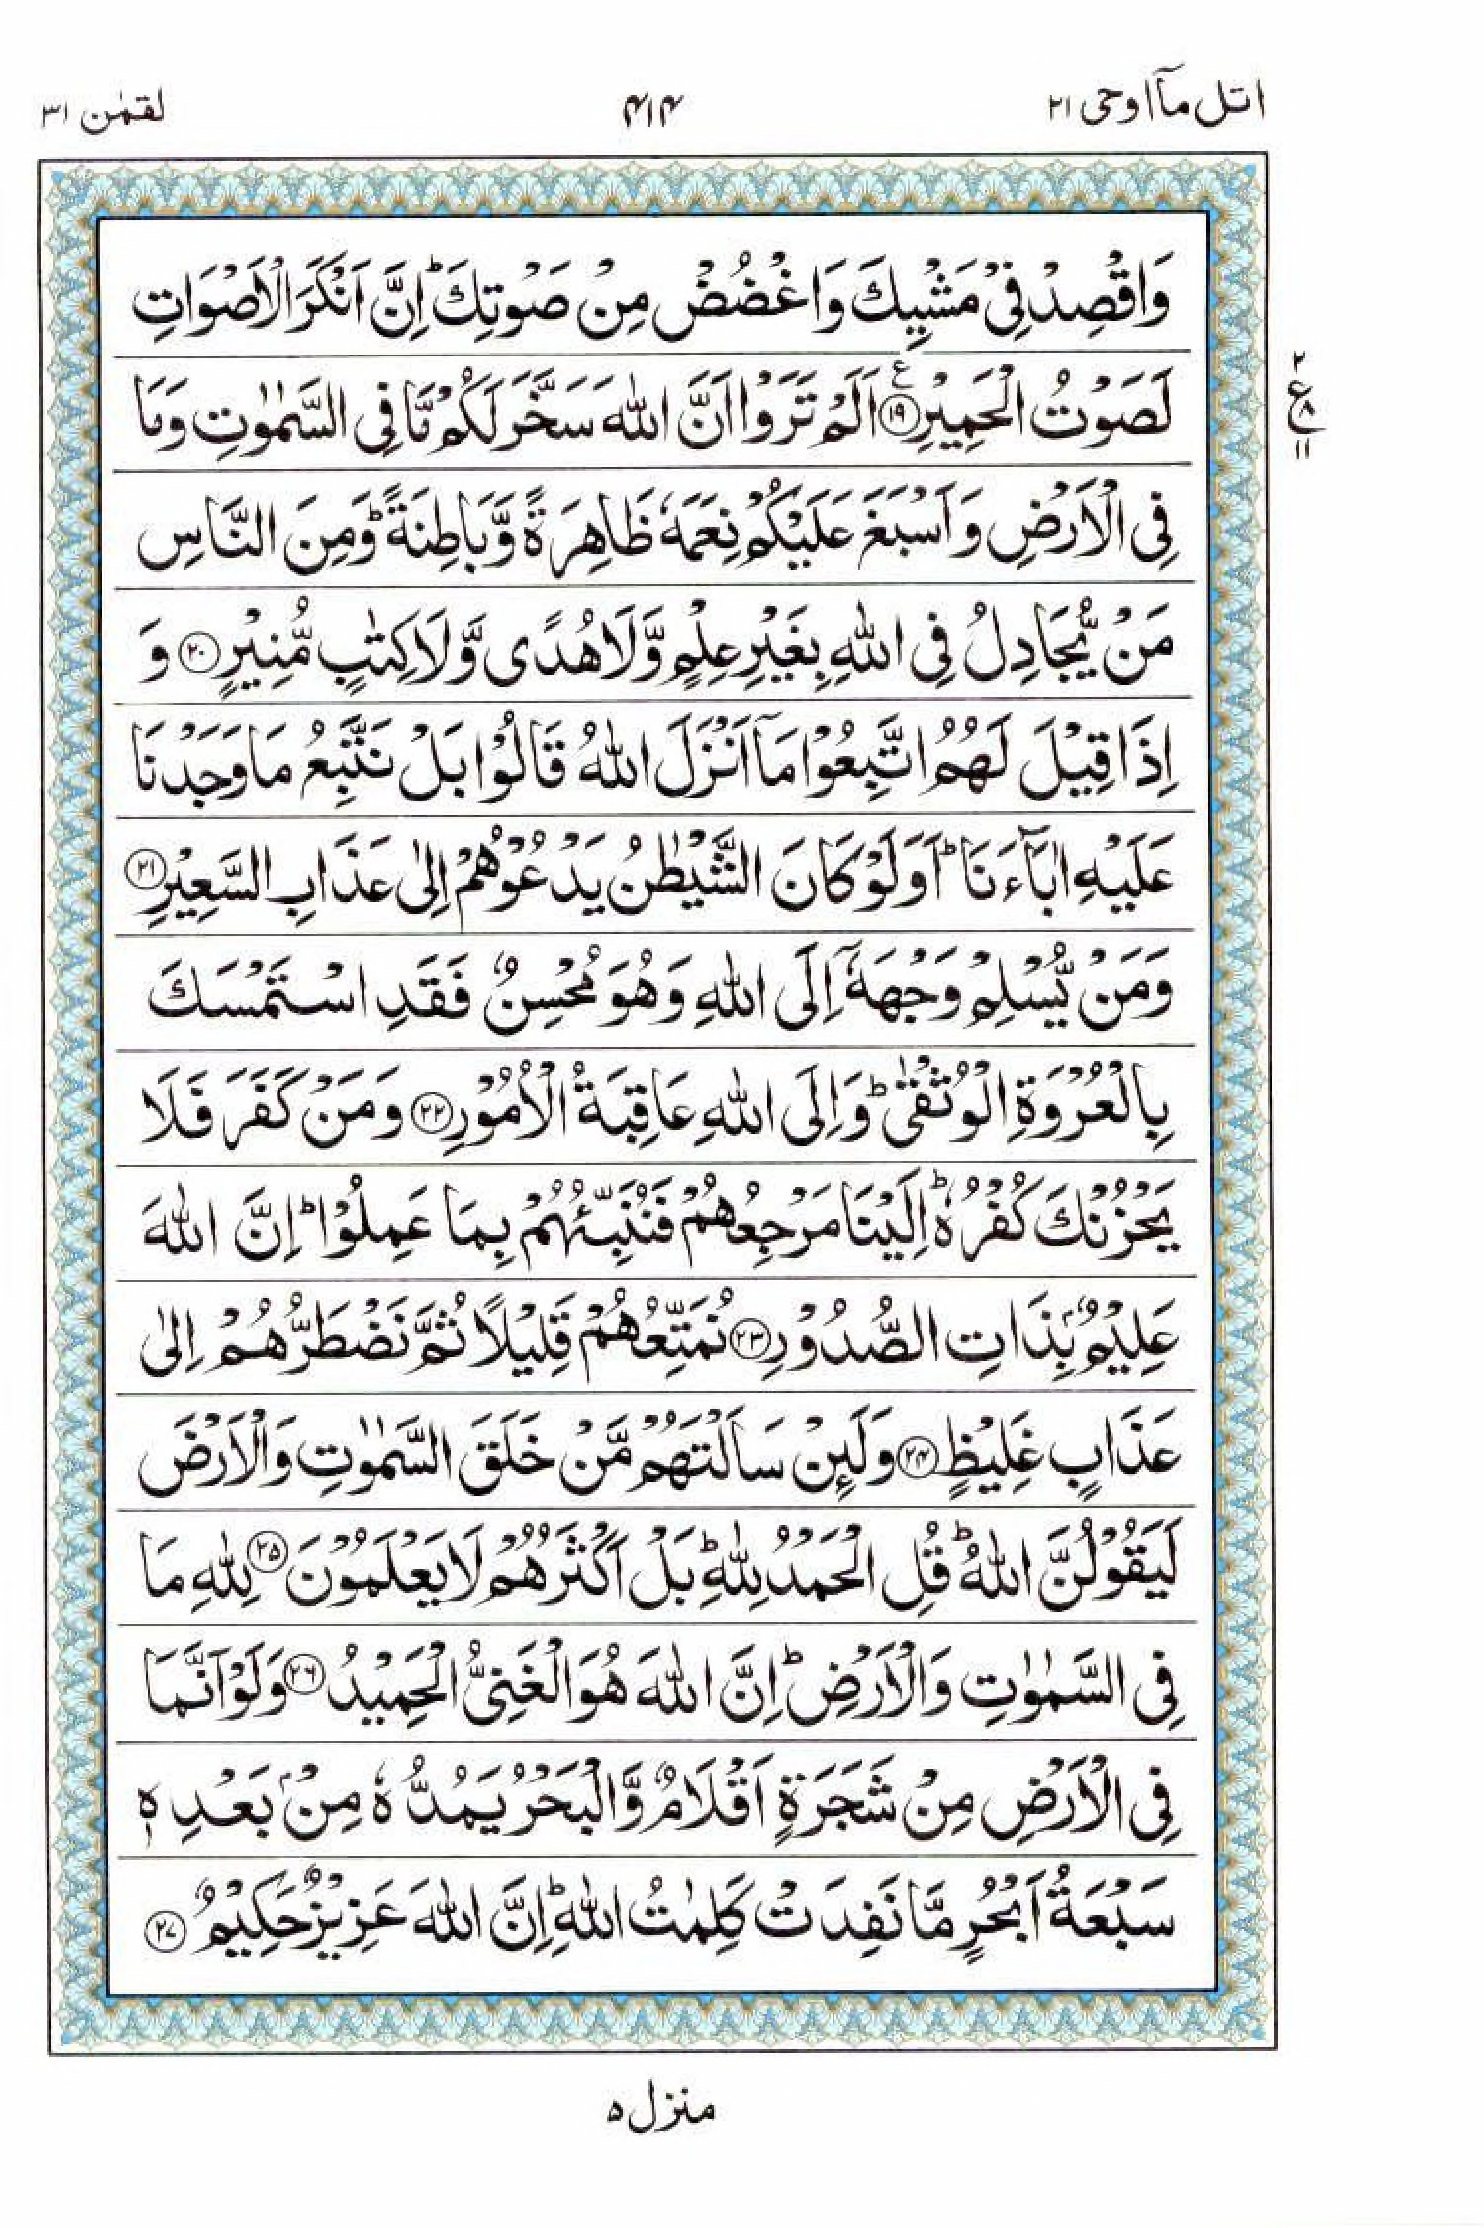 اتل مآ اوحی ۲۱
۴۱۴
لقمٰن ۳۱
وَاقْصِدْ فِيْ مَشْيِكَ وَاغْضُضْ مِنْ صَوْتِكَ ؕ اِنَّ اَنْكَرَ الْاَصْوَاتِ
لَصَوْتُ الْحَمِيْرِ ۟ ع ⑲ اَلَمْ تَرَوْا اَنَّ اللّٰهَ سَخَّرَ لَكُمْ مَّا فِي السَّمٰوٰتِ وَمَا
۲
ع
۸
۱۱
فِي الْاَرْضِ وَاَسْبَغَ عَلَيْكُمْ نِعَمَهٗ ظَاهِرَةً وَّبَاطِنَةً ؕ وَمِنَ النَّاسِ
مَنْ يُّجَادِلُ فِي اللّٰهِ بِغَيْرِ عِلْمٍ وَّلَا هُدًى وَّلَا كِتٰبٍ مُّنِيْرٍ ۲۰ وَ
اِذَا قِيْلَ لَهُمُ اتَّبِعُوْا مَآ اَنْزَلَ اللّٰهُ قَالُوْا بَلْ نَتَّبِعُ مَا وَجَدْنَا
عَلَيْهِ اٰبَآءَنَا ؕ اَوَلَوْ كَانَ الشَّيْطٰنُ يَدْعُوْهُمْ اِلٰى عَذَابِ السَّعِيْرِ ۲۱
وَمَنْ يُّسْلِمْ وَجْهَهٗۤ اِلَى اللّٰهِ وَهُوَ مُحْسِنٌ فَقَدِ اسْتَمْسَكَ
بِالْعُرْوَةِ الْوُثْقٰى ؕ وَاِلَى اللّٰهِ عَاقِبَةُ الْاُمُوْرِ ۲۲ وَمَنْ كَفَرَ فَلَا
يَحْزُنْكَ كُفْرُهٗ ؕ اِلَيْنَا مَرْجِعُهُمْ فَنُنَبِّئُهُمْ بِمَا عَمِلُوْا ؕ اِنَّ اللّٰهَ
عَلِيْمٌۢ بِذَاتِ الصُّدُوْرِ ۲۳ نُمَتِّعُهُمْ قَلِيْلًا ثُمَّ نَضْطَرُّهُمْ اِلٰى
عَذَابٍ غَلِيْظٍ ۲۴ وَلَئِنْ سَاَلْتَهُمْ مَّنْ خَلَقَ السَّمٰوٰتِ وَالْاَرْضَ
لَيَقُوْلُنَّ اللّٰهُ ؕ قُلِ الْحَمْدُ لِلّٰهِ ؕ بَلْ اَكْثَرُهُمْ لَا يَعْلَمُوْنَ ۲۵ لِلّٰهِ مَا
فِي السَّمٰوٰتِ وَالْاَرْضِ ؕ اِنَّ اللّٰهَ هُوَ الْغَنِيُّ الْحَمِيْدُ ۲۶ وَلَوْ اَنَّمَا
فِي الْاَرْضِ مِنْ شَجَرَةٍ اَقْلَامٌ وَّالْبَحْرُ يَمُدُّهٗ مِنْۢ بَعْدِهٖ
سَبْعَةُ اَبْحُرٍ مَّا نَفِدَتْ كَلِمٰتُ اللّٰهِ ؕ اِنَّ اللّٰهَ عَزِيْزٌ حَكِيْمٌ ۲۷
منزل ۵